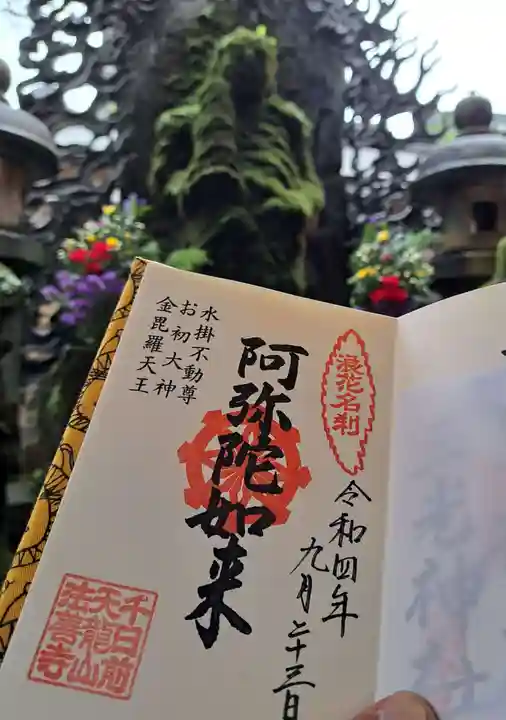 浪花名刹
令和四年
九月二十三日
阿弥陀如来
水掛不動尊
お初大神
金毘羅天王
千日前
天龍山
法善寺